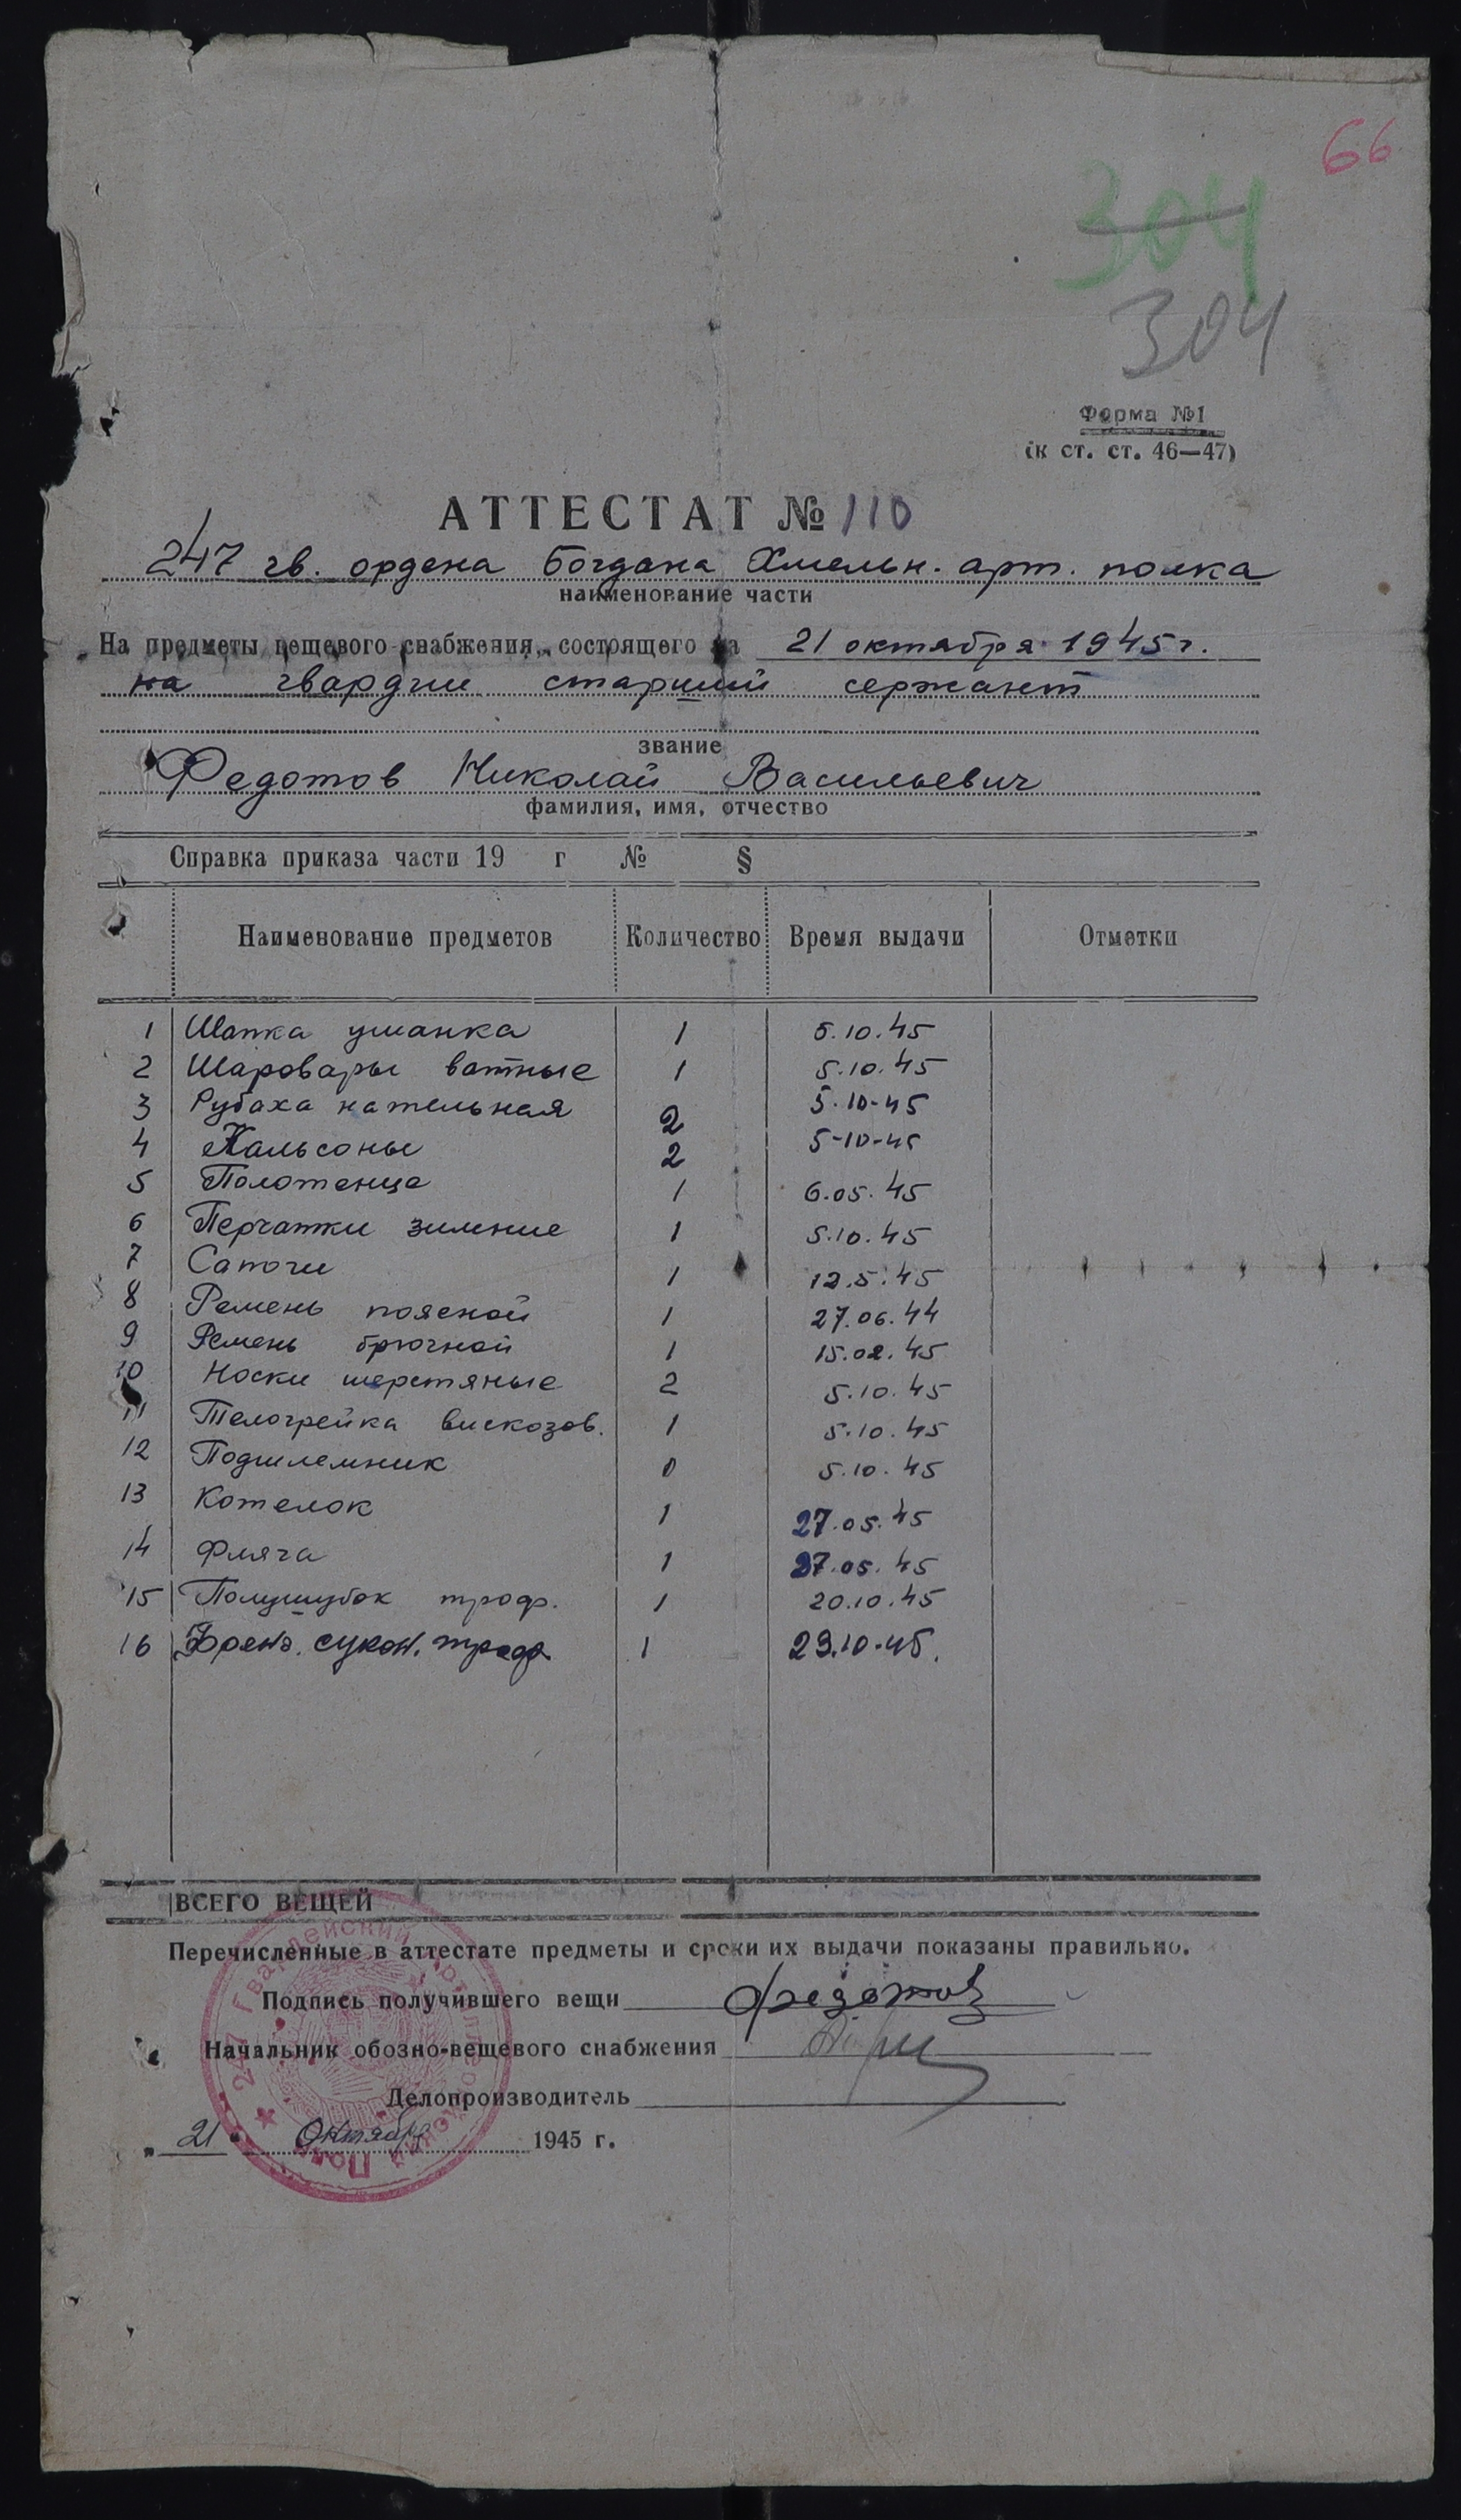 66
304
304
Форма №1
(к ст. ст. 46—47)
АТТЕСТАТ № 110
247 гв. ордена Богдана Хмельн. арт. полка
наименование части
На предметы вещевого снабжения, состоящего на 21 октября 1945 г.
на гвардии старший сержант
звание
Федотов Николай Васильевич
фамилия, имя, отчество
Справка приказа части 19 г № §
Наименование предметов Количество Время выдачи Отметки
1 Шапка ушанка 1 5.10.45
2 Шаровары ватные 1 5.10.45
3 Рубаха нательная 2 5.10-45
4 Кальсоны 2 5-10-45
5 Полотенце 1 6.05.45
6 Перчатки зимние 1 5.10.45
7 Сапоги 1 12.5.45
8 Ремень поясной 1 27.06.44
9 Ремень брючной 1 15.02.45
10 Носки шерстяные 2 5.10.45
11 Телогрейка вискозов. 1 5.10.45
12 Подшлемник 0 5.10.45
13 Котелок 1 27.05.45
14 Фляга 1 27.05.45
15 Полушубок троф. 1 20.10.45
16 Френч. сукон. троф. 1 23.10-45.
ВСЕГО ВЕЩЕЙ
Перечисленные в аттестате предметы и сроки их выдачи показаны правильно.
Подпись получившего вещи Федотов
Начальник обозно-вещевого снабжения
Делопроизводитель
„21" Октября 1945 г.
★ 247 Гвардейский Артиллерийский Полк